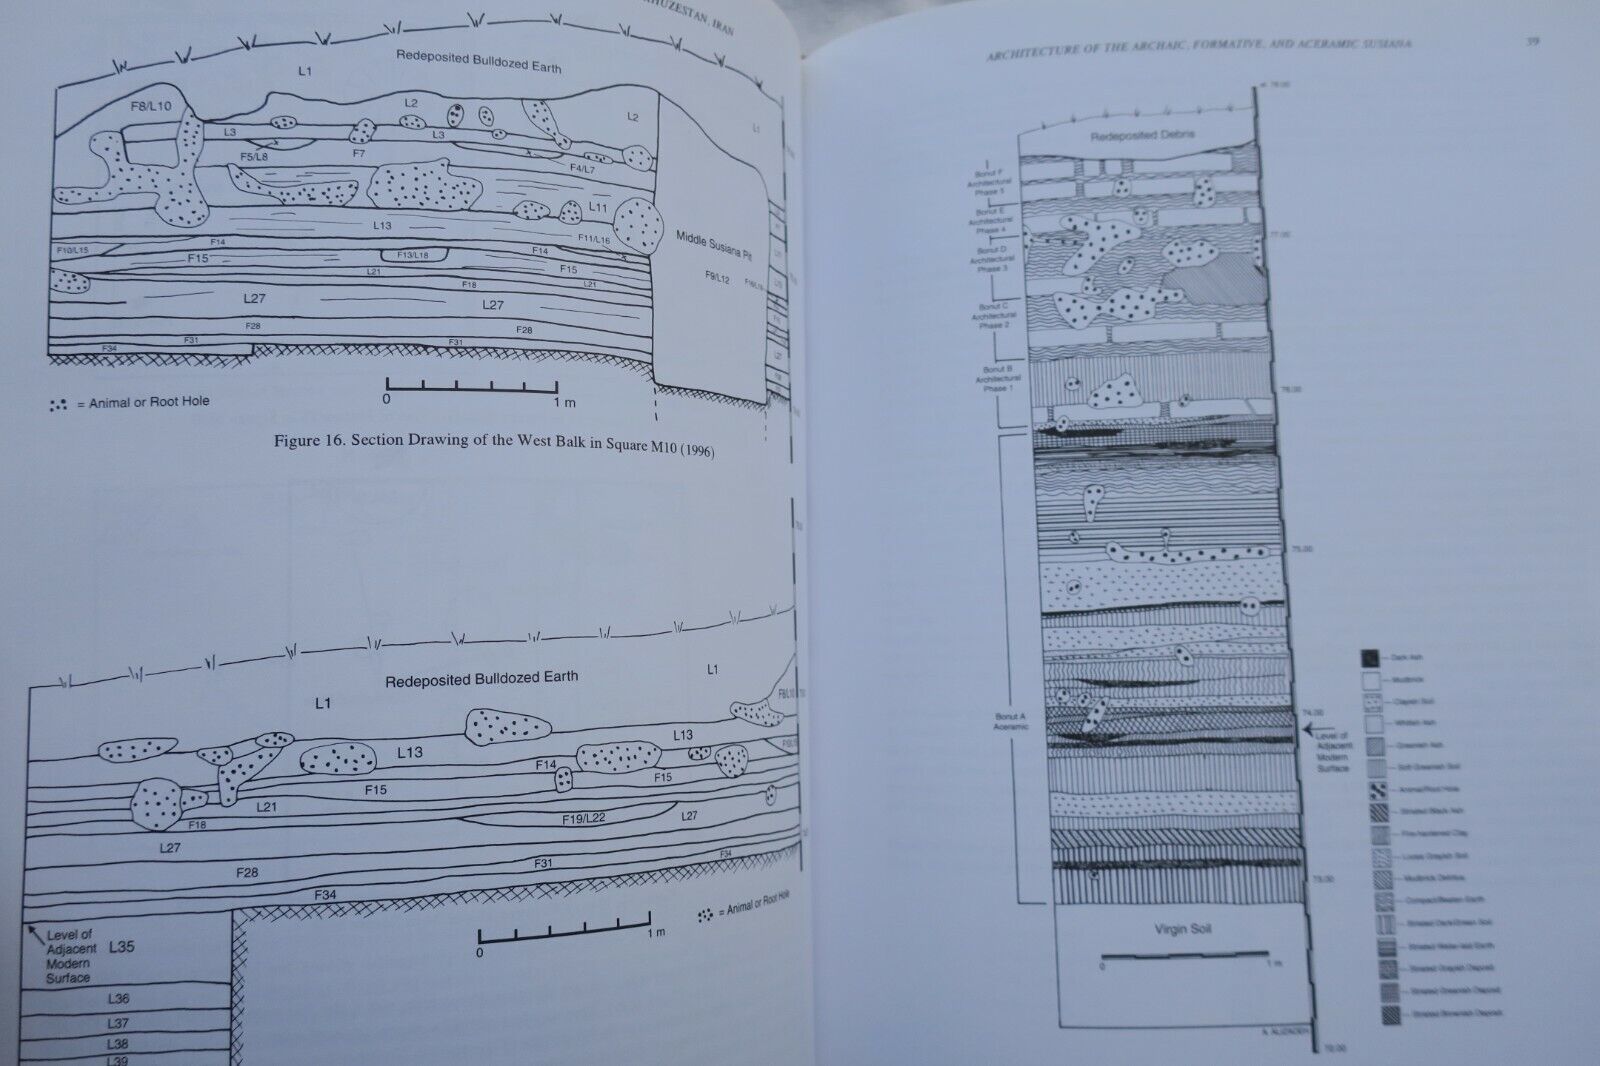 KHUZESTAN, IRAN
Redeposited Bulldozed Earth
L1
F8/L10
L2
L2
L1
L3
L3
F5/L8
F7
F4/L7
L11
L13
F10/L15
F14
F11/L16
F15
F13/L18
F14
F15
L21
F18
L21
L27
L27
F28
F28
F34
F31
F31
Middle Susiana Pit
F9/L12
= Animal or Root Hole
0
1 m
Figure 16. Section Drawing of the West Balk in Square M10 (1996)
Redeposited Bulldozed Earth
L1
L1
F8/L10
L13
L13
F14
F15
F15
L21
F18
F19/L22
L27
L27
F28
F31
F34
F34
Level of
Adjacent
Modern
Surface
L35
L36
L37
L38
L39
0
1 m
= Animal or Root Hole
ARCHITECTURE OF THE ARCHAIC, FORMATIVE, AND ACERAMIC SUSIANA
39
Redeposited Debris
Bonut F
Architectural
Phase 5
Bonut E
Architectural
Phase 4
Bonut D
Architectural
Phase 3
Bonut C
Architectural
Phase 2
Bonut B
Architectural
Phase 1
Bonut A
Aceramic
77.00
76.00
75.00
74.00
73.00
72.00
Level of
Adjacent
Modern
Surface
Virgin Soil
0
1 m
A. ALIZADEH
Dark Ash
Mudbrick
Clayish Soil
Whitish Ash
Greenish Ash
Soft Greenish Soil
Animal/Root Hole
Striated Black Ash
Fire-hardened Clay
Loose Grayish Soil
Mudbrick Debris
Compact/Beaten Earth
Striated Dark/Green Soil
Striated Water-laid Earth
Striated Grayish Deposit
Striated Greenish Deposit
Striated Brownish Deposit